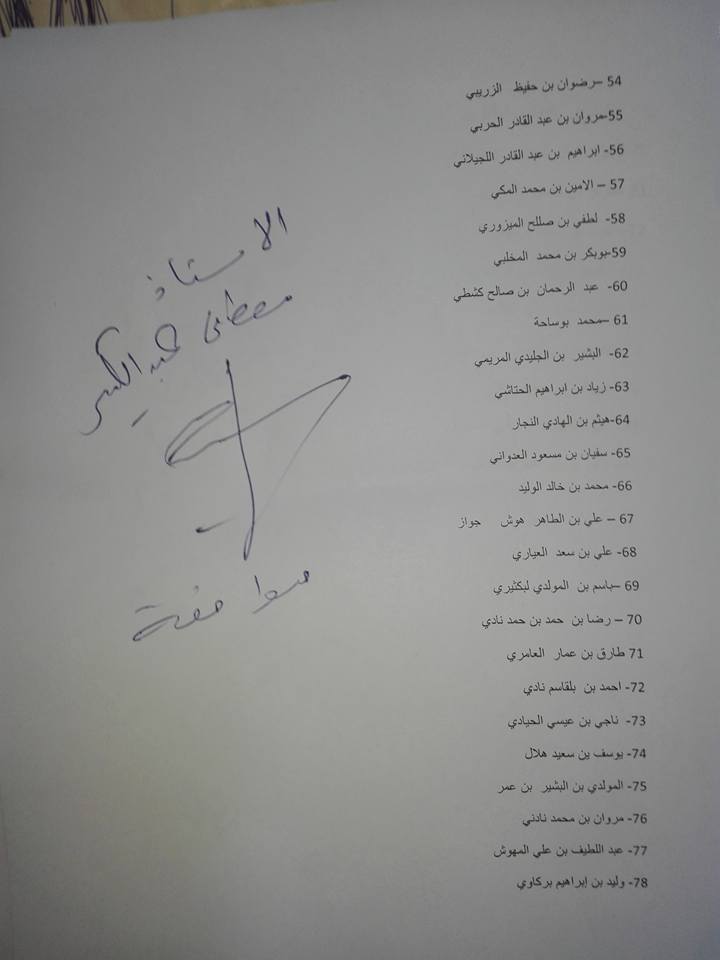 54 –رضوان بن حفيظ الزريبي
55-مروان بن عبد القادر الحربي
56- ابراهيم بن عبد القادر اللجيلاني
57 – الامين بن محمد المكي
58- لطفي بن صللح الميزوري
59-بوبكر بن محمد المخلبي
60- عبد الرحمان بن صالح كشطي
61 –محمد بوساحة
62- البشير بن الجليدي المريمي
63- زياد بن ابراهيم الحتاشي
64-هيثم بن الهادي النجار
65- سفيان بن مسعود العدواني
66- محمد بن خالد الوليد
67 – علي بن الطاهر هوش جواز
68- علي بن سعد العياري
69 –باسم بن المولدي لبكثيري
70 – رضا بن حمد بن حمد نادي
71 طارق بن عمار العامري
72- احمد بن بلقاسم نادي
73- ناجي بن عيسي الحيادي
74- يوسف بن سعيد هلال
75- المولدي بن البشير بن عمر
76- مروان بن محمد نادني
77- عبد اللطيف بن علي المهوش
78- وليد بن إبراهيم بركاوي
الاستاذ
مصطفى عبد الكبير
موافقة